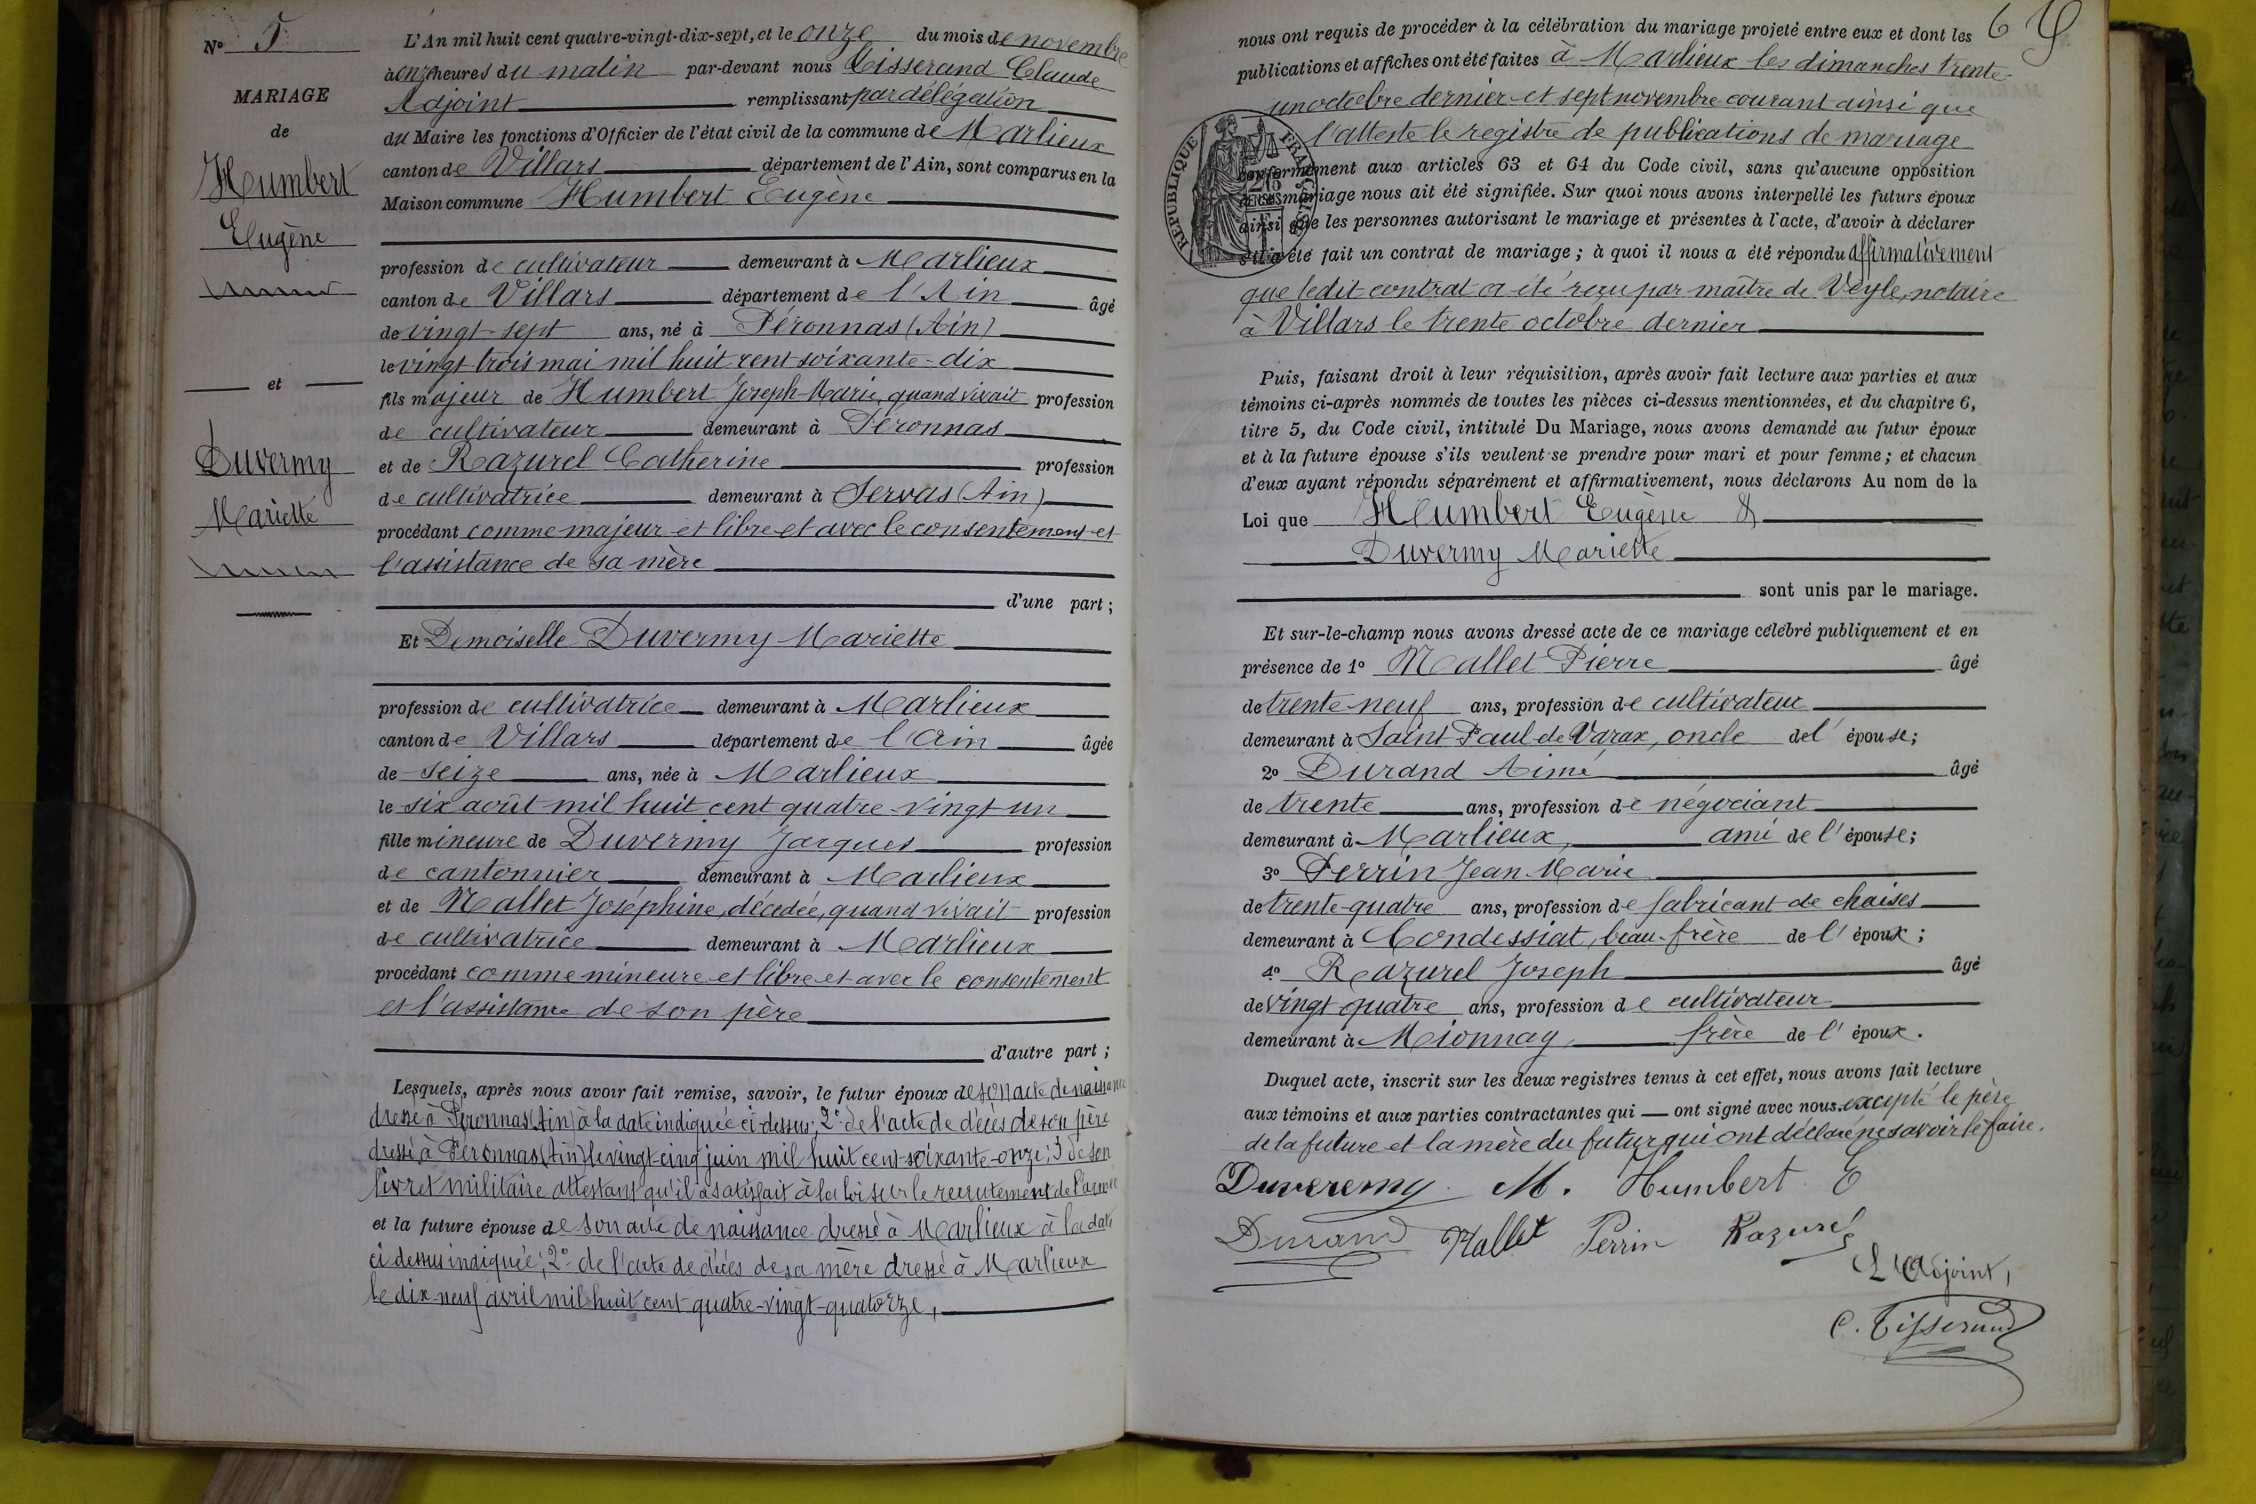 No 5
MARIAGE
de
Humbert
Eugène
et
Duvermy
Mariette
L'An mil huit cent quatre-vingt-dix-sept, et le onze du mois de novembre
à onze heures du matin par-devant nous Tisserand Claude
Adjoint remplissant par délégation
du Maire les fonctions d'Officier de l'état civil de la commune de Marlieux
canton de Villars département de l'Ain, sont comparus en la
Maison commune Humbert Eugène
profession de cultivateur demeurant à Marlieux
canton de Villars département de l'Ain âgé
de vingt-sept ans, né à Péronnas (Ain)
le vingt trois mai mil huit cent soixante-dix
fils majeur de Humbert Joseph-Marie, quand vivait profession
de cultivateur demeurant à Péronnas
et de Razurel Catherine profession
de cultivatrice demeurant à Servas (Ain)
procédant comme majeur et libre et avec le consentement et
l'assistance de sa mère
d'une part ;
Et Demoiselle Duvermy Mariette
profession de cultivatrice demeurant à Marlieux
canton de Villars département de l'Ain âgée
de seize ans, née à Marlieux
le six août mil huit cent quatre-vingt-un
fille mineure de Duvermy Jacques profession
de cantonnier demeurant à Marlieux
et de Mallet Joséphine, décédée, quand vivait profession
de cultivatrice demeurant à Marlieux
procédant comme mineure et libre et avec le consentement
et l'assistance de son père
d'autre part ;
Lesquels, après nous avoir fait remise, savoir, le futur époux de son acte de naissance
dressé à Péronnas (Ain) à la date indiquée ci-dessus ; 2° de l'acte de décès de son père
dressé à Péronnas (Ain) le vingt-cinq juin mil huit cent soixante-onze ; 3° de son
livret militaire attestant qu'il a satisfait à la loi sur le recrutement de l'armée
et la future épouse de son acte de naissance dressé à Marlieux à la date
ci dessus indiquée ; 2° de l'acte de décès de sa mère dressé à Marlieux
le dix-neuf avril mil huit cent quatre-vingt-quatorze,
6
nous ont requis de procéder à la célébration du mariage projeté entre eux et dont les
publications et affiches ont été faites à Marlieux les dimanches trente-
un octobre dernier et sept novembre courant ainsi que
l'atteste le registre de publications de mariage
RÉPUBLIQUE FRANÇAISE
conformément aux articles 63 et 64 du Code civil, sans qu'aucune opposition
à ce mariage nous ait été signifiée. Sur quoi nous avons interpellé les futurs époux
ainsi que les personnes autorisant le mariage et présentes à l'acte, d'avoir à déclarer
s'il a été fait un contrat de mariage ; à quoi il nous a été répondu affirmativement
que ledit contrat a été reçu par maître de Veyle, notaire
à Villars le trente octobre dernier
Puis, faisant droit à leur réquisition, après avoir fait lecture aux parties et aux
témoins ci-après nommés de toutes les pièces ci-dessus mentionnées, et du chapitre 6,
titre 5, du Code civil, intitulé Du Mariage, nous avons demandé au futur époux
et à la future épouse s'ils veulent se prendre pour mari et pour femme ; et chacun
d'eux ayant répondu séparément et affirmativement, nous déclarons Au nom de la
Loi que Humbert Eugène &
Duvermy Mariette
sont unis par le mariage.
Et sur-le-champ nous avons dressé acte de ce mariage célébré publiquement et en
présence de 1° Mallet Pierre âgé
de trente-neuf ans, profession de cultivateur
demeurant à Saint Paul de Varax, oncle de l'épouse ;
2° Durand Aimé âgé
de trente ans, profession de négociant
demeurant à Marlieux, ami de l'épouse ;
3° Perrin Jean Marie
de trente-quatre ans, profession de fabricant de chaises
demeurant à Condessiat, beau-frère de l'époux ;
4° Razurel Joseph âgé
de vingt quatre ans, profession de cultivateur
demeurant à Mionnay, frère de l'époux.
Duquel acte, inscrit sur les deux registres tenus à cet effet, nous avons fait lecture
aux témoins et aux parties contractantes qui — ont signé avec nous excepté le père
de la future et la mère du futur qui ont déclaré ne savoir le faire.
Duveremy M. Humbert E
Durand Mallet Perrin Razurel
L'Adjoint,
C. Tisserand